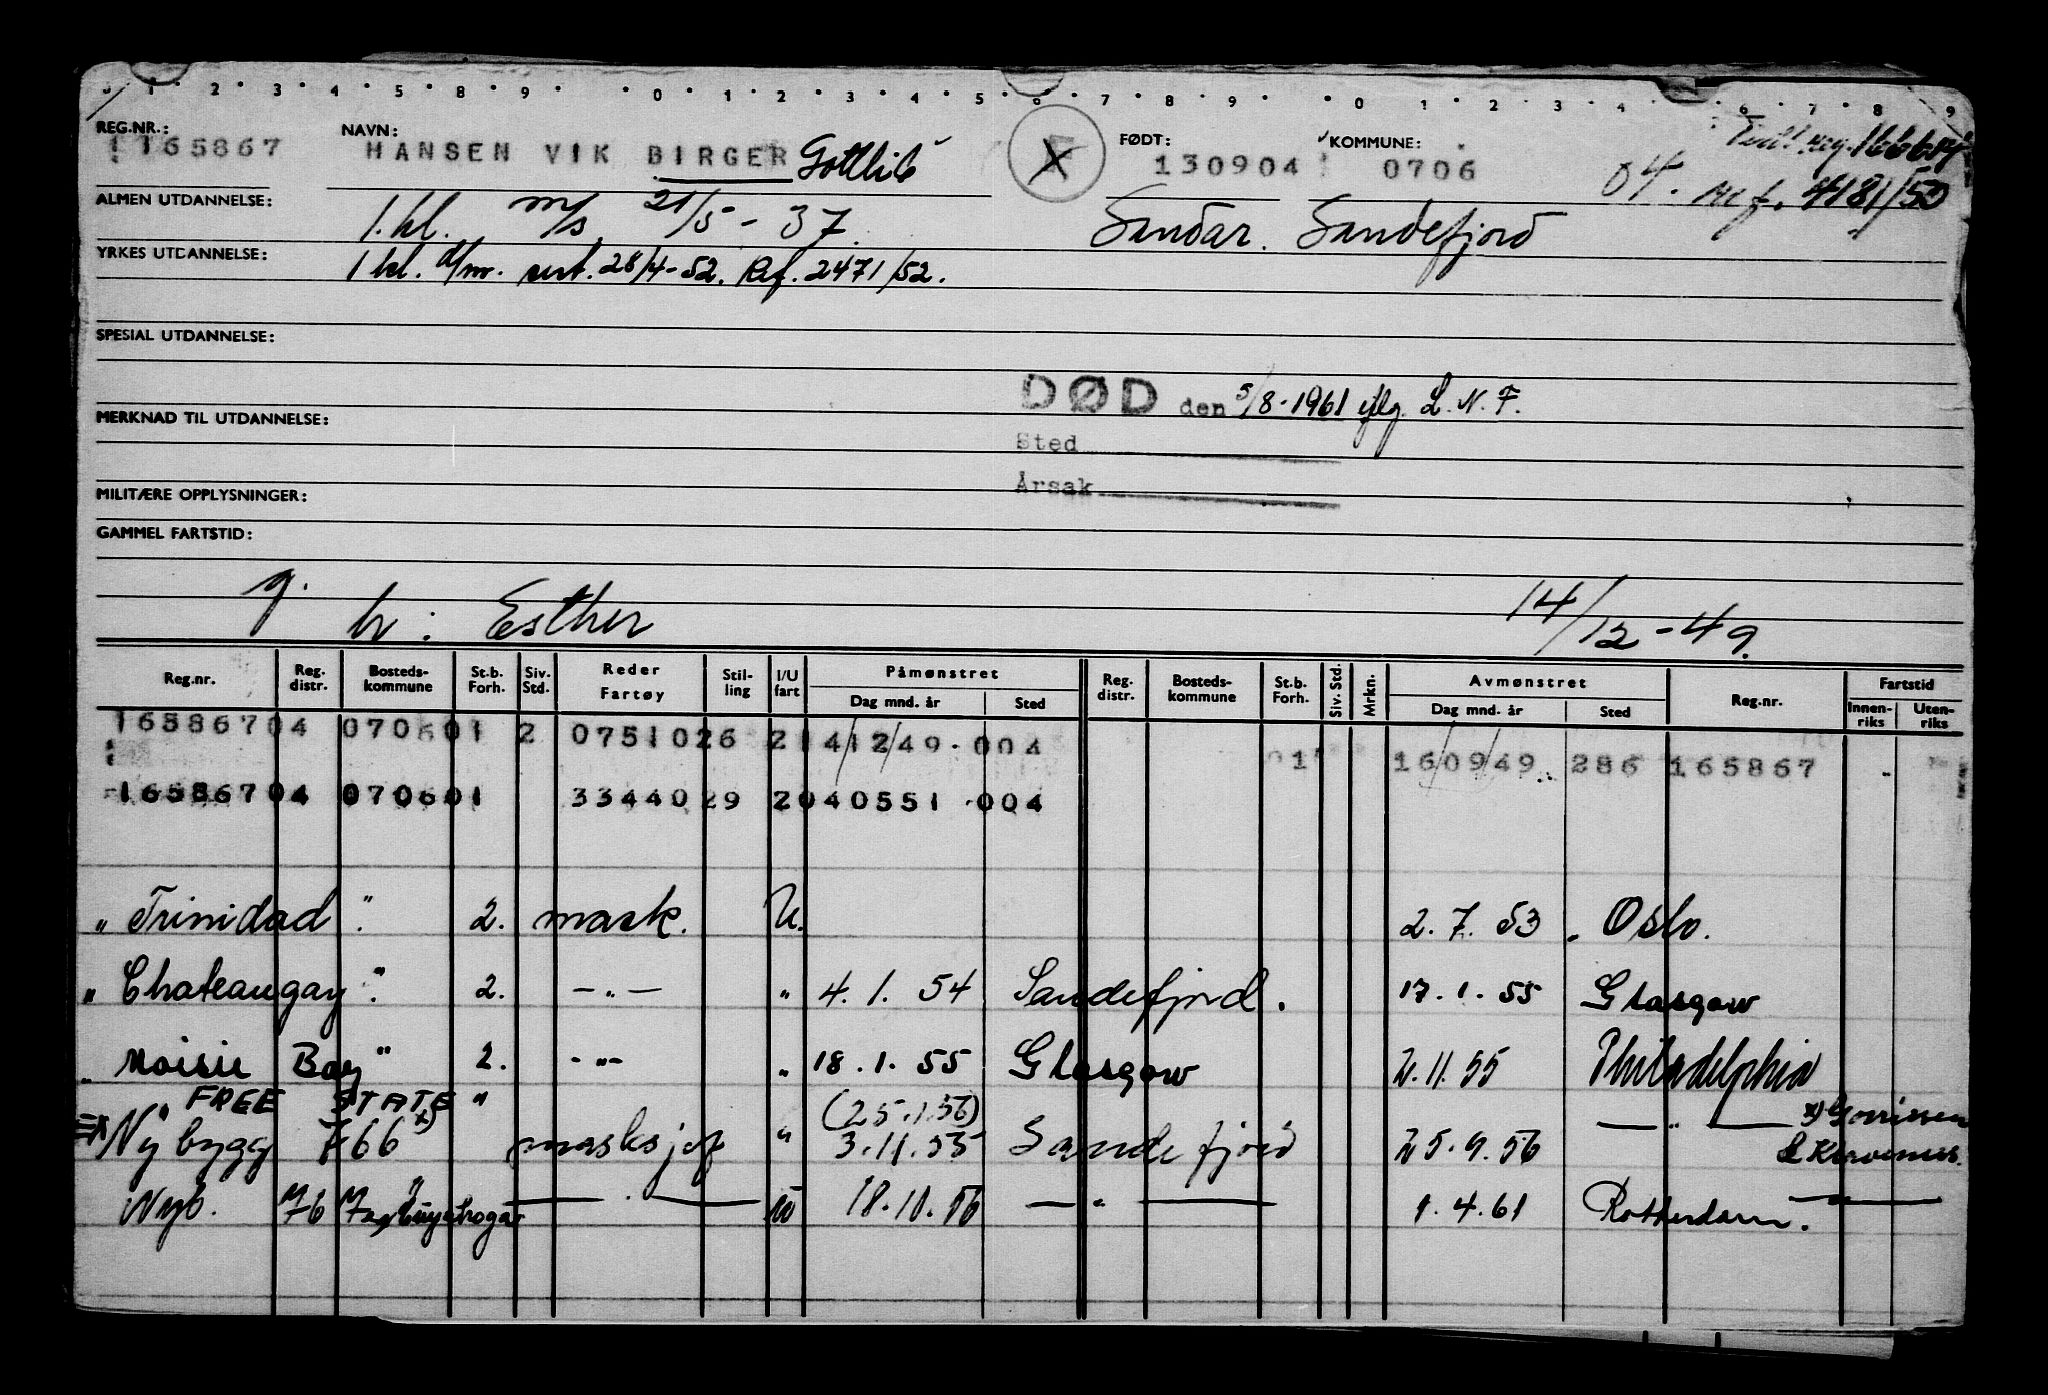 1 2 3 4 5 8 9 0 1 2 3 4 5 6 7 8 9 0 1 2 3 4 6 7 8 9
REG.NR.: NAVN: FØDT: KOMMUNE:
165867 HANSEN VIK BIRGER Gottlib X 130904 0706
04. Ref. 4181/50
ALMEN UTDANNELSE: 1. kl. m/s 21/5-37. Sandar. Sandefjord
YRKES UTDANNELSE: 1 kl. d/m. sert. 28/4-52. Ref. 2471/52.
SPESIAL UTDANNELSE:
DØD den 5/8-1961 iflg. L. N. F.
MERKNAD TIL UTDANNELSE:
Sted
Årsak
MILITÆRE OPPLYSNINGER:
GAMMEL FARTSTID:
g. h: Esther 14/12-49.
Reg.nr. Reg. distr. Bosteds-kommune St.b. Forh. Siv. Std. Reder Fartøy Stil-ling I/U fart Påmønstret Dag mnd. år Sted Reg. distr. Bosteds-kommune St.b. Forh. Siv. Std. Mrkn. Avmønstret Dag mnd. år Sted Reg.nr. Fartstid Innen-riks Uten-riks
165867 04 0706 01 2 07510 26 2 14/12/49 004
01 16/09/49 286 165867
165867 04 0706 01 33440 29 2 040551 004
" Trinidad " 2. mask. U. 2.7.53 Oslo.
" Chateaugay " 2. — " — " 4.1.54 Sandefjord. 17.1.55 Glasgow
" Moisie Bay " 2. - " - " 18.1.55 Glasgow 2.11.55 Philadelphia
" FREE STATE " (25.1.56)
Nybygg 766 x) masksjef " 3.11.55 Sandefjord 25.9.56 — " — x) Gorrissen & Klaveness.
Nyb. 76 " — " — 18.10.56 — " — 1.4.61 Rotterdam. — " —